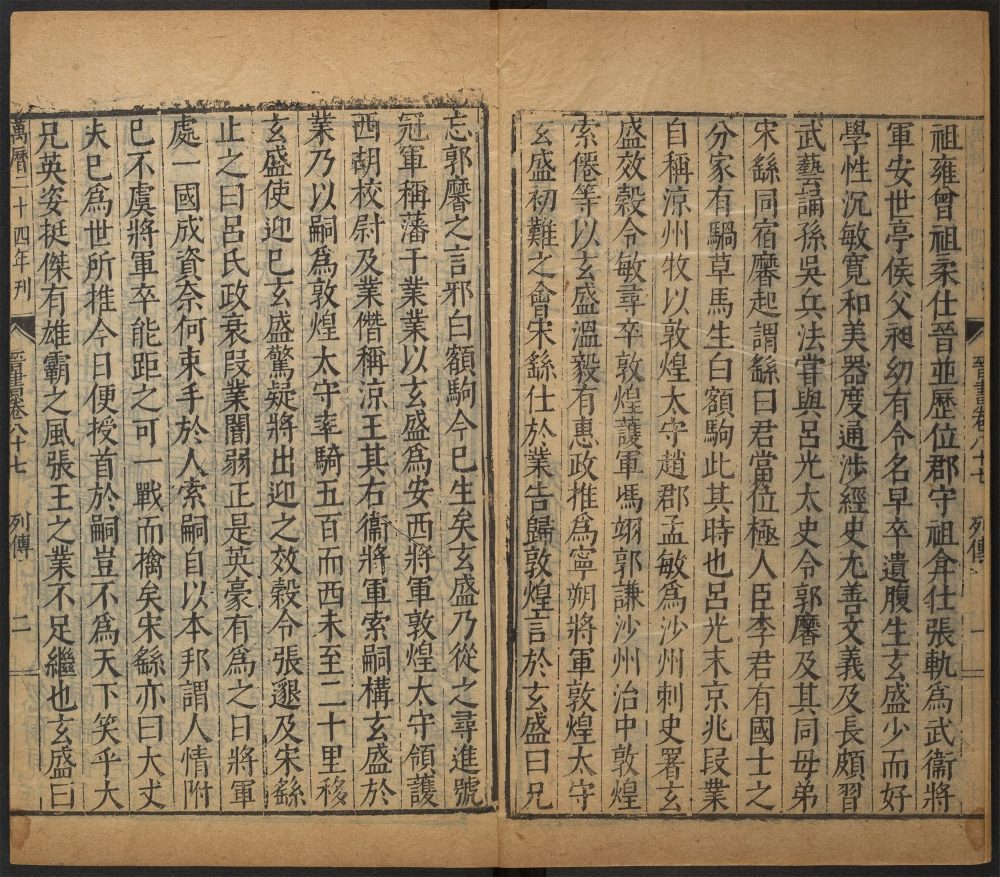 祖雍曾祖柔仕晉並歷位郡守祖弇仕張軌為武衞將
軍安世亭侯父昶幼有令名早卒遺腹生玄盛少而好
學性沉敏寬和美器度通涉經史尤善文義及長頗習
武藝誦孫吳兵法嘗與呂光太史令郭黁及其同母弟
宋繇同宿黁起謂繇曰君當位極人臣李君有國士之
分家有騧草馬生白額駒此其時也呂光末京兆段業
自稱涼州牧以敦煌太守趙郡孟敏為沙州刺史署玄
盛效穀令敏尋卒敦煌護軍馮翊郭謙沙州治中敦煌
索僊等以玄盛溫毅有惠政推為寧朔將軍敦煌太守
玄盛初難之會宋繇仕於業告歸敦煌言於玄盛曰兄
晉書卷八十七 列傳 一
忘郭黁之言邪白額駒今已生矣玄盛乃從之尋進號
冠軍稱藩于業業以玄盛為安西將軍敦煌太守領護
西胡校尉及業僭稱涼王其右衞將軍索嗣構玄盛於
業乃以嗣為敦煌太守率騎五百而西未至二十里移
玄盛使迎已玄盛驚疑將出迎之效穀令張邈及宋繇
止之曰呂氏政衰段業闇弱正是英豪有為之日將軍
處一國成資奈何束手於人索嗣自以本邦謂人情附
已不虞將軍卒能距之可一戰而擒矣宋繇亦曰大丈
夫已為世所推今日便授首於嗣豈不為天下笑乎大
兄英姿挺傑有雄霸之風張王之業不足繼也玄盛曰
萬曆二十四年刊 晉書卷八十七 列傳 二